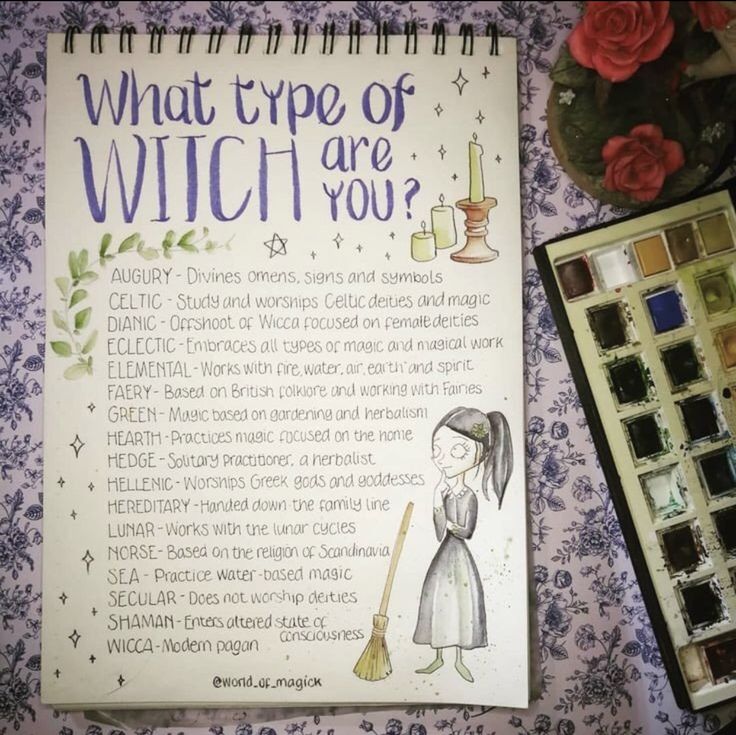 What type of
WITCH are
YOU?
AUGURY - Divines omens, signs and symbols
CELTIC - Study and worships Celtic deities and magic
DIANIC - Offshoot of Wicca focused on female deities
ECLECTIC - Embraces all types of magic and magical work
ELEMENTAL - Works with fire, water, air, earth and spirit
FAERY - Based on British folklore and working with Fairies
GREEN - Magic based on gardening and herbalism
HEARTH - Practices magic focused on the home
HEDGE - Solitary Practitioner, a herbalist
HELLENIC - Worships Greek gods and goddesses
HEREDITARY - Handed down the family line
LUNAR - Works with the lunar cycles
NORSE - Based on the religion of Scandinavia
SEA - Practice water-based magic
SECULAR - Does not worship deities
SHAMAN - Enters altered state of
consciousness
WICCA - Modern pagan
@world_of_magick